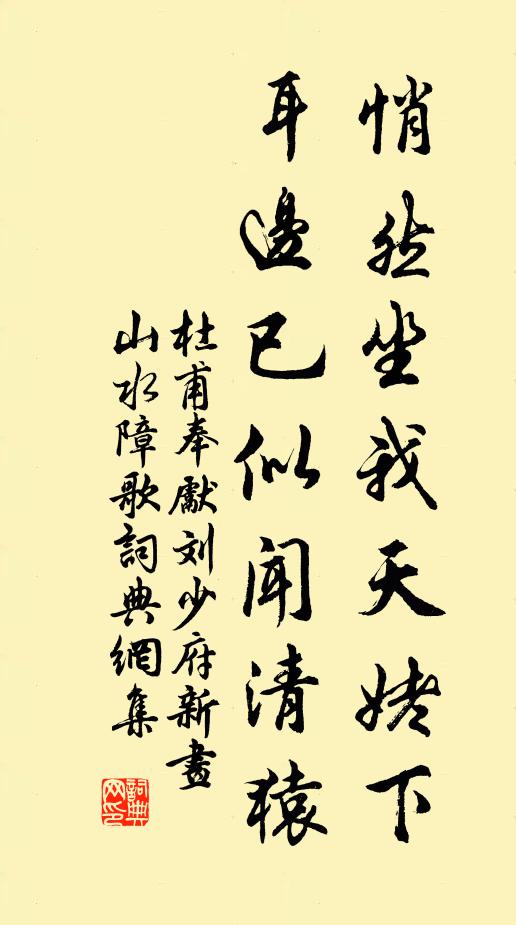 悄然坐我天姥下
耳邊已似闻清猿
杜甫奉獻刘少府新畫
山水障歌詞典網集
詞典
网印